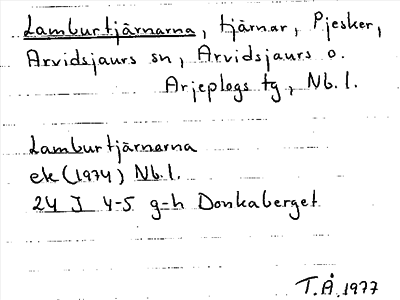 Lamburtjärnarna, tjärnar, Pjesker,
Arvidsjaurs sn, Arvidsjaurs o.
Arjeplogs tg, Nb.l.
Lamburtjärnarna
ek (1974) Nb.l.
24 J 4-5 g-h Donkaberget
T.Å. 1977